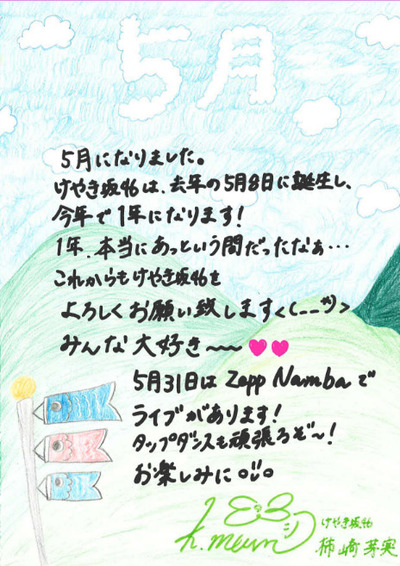 5月
5月になりました。
けやき坂46は、去年の5月8日に誕生し、
今年で1年になります！
1年、本当にあっという間だったなぁ…
これからもけやき坂46を
よろしくお願い致します<(_ _*)>
みんな大好き〜〜♥♥
5月31日は Zepp Nambaで
ライブがあります！
タップダンスも頑張るぞ〜！
お楽しみに
けやき坂46
柿崎芽実